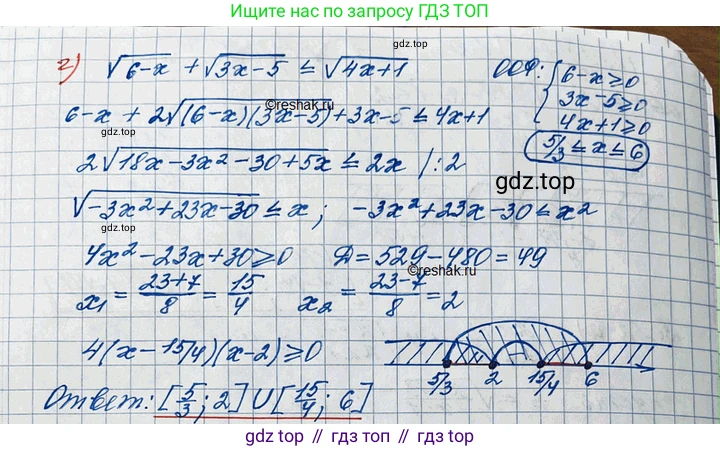 Ищите нас по запросу ГДЗ ТОП
г) √(6-x) + √(3x-5) ≤ √(4x+1)
ООФ: { 6-x ≥ 0
3x-5 ≥ 0
4x+1 ≥ 0
5/3 ≤ x ≤ 6
gdz.top
6-x + 2√((6-x)(3x-5)) + 3x-5 ≤ 4x+1
©reshak.ru
gdz.top
2√(18x-3x²-30+5x) ≤ 2x /:2
gdz.top
√(-3x²+23x-30) ≤ x; -3x²+23x-30 ≤ x²
gdz.top
4x²-23x+30 ≥ 0 D = 529-480 = 49
©reshak.ru
x₁ = (23+7)/8 = 15/4 x₂ = (23-7)/8 = 2
gdz.top
4(x-15/4)(x-2) ≥ 0
5/3 2 15/4 6
Ответ: [5/3; 2] ∪ [15/4; 6]
gdz top // гдз топ // gdz.top // гдз.топ